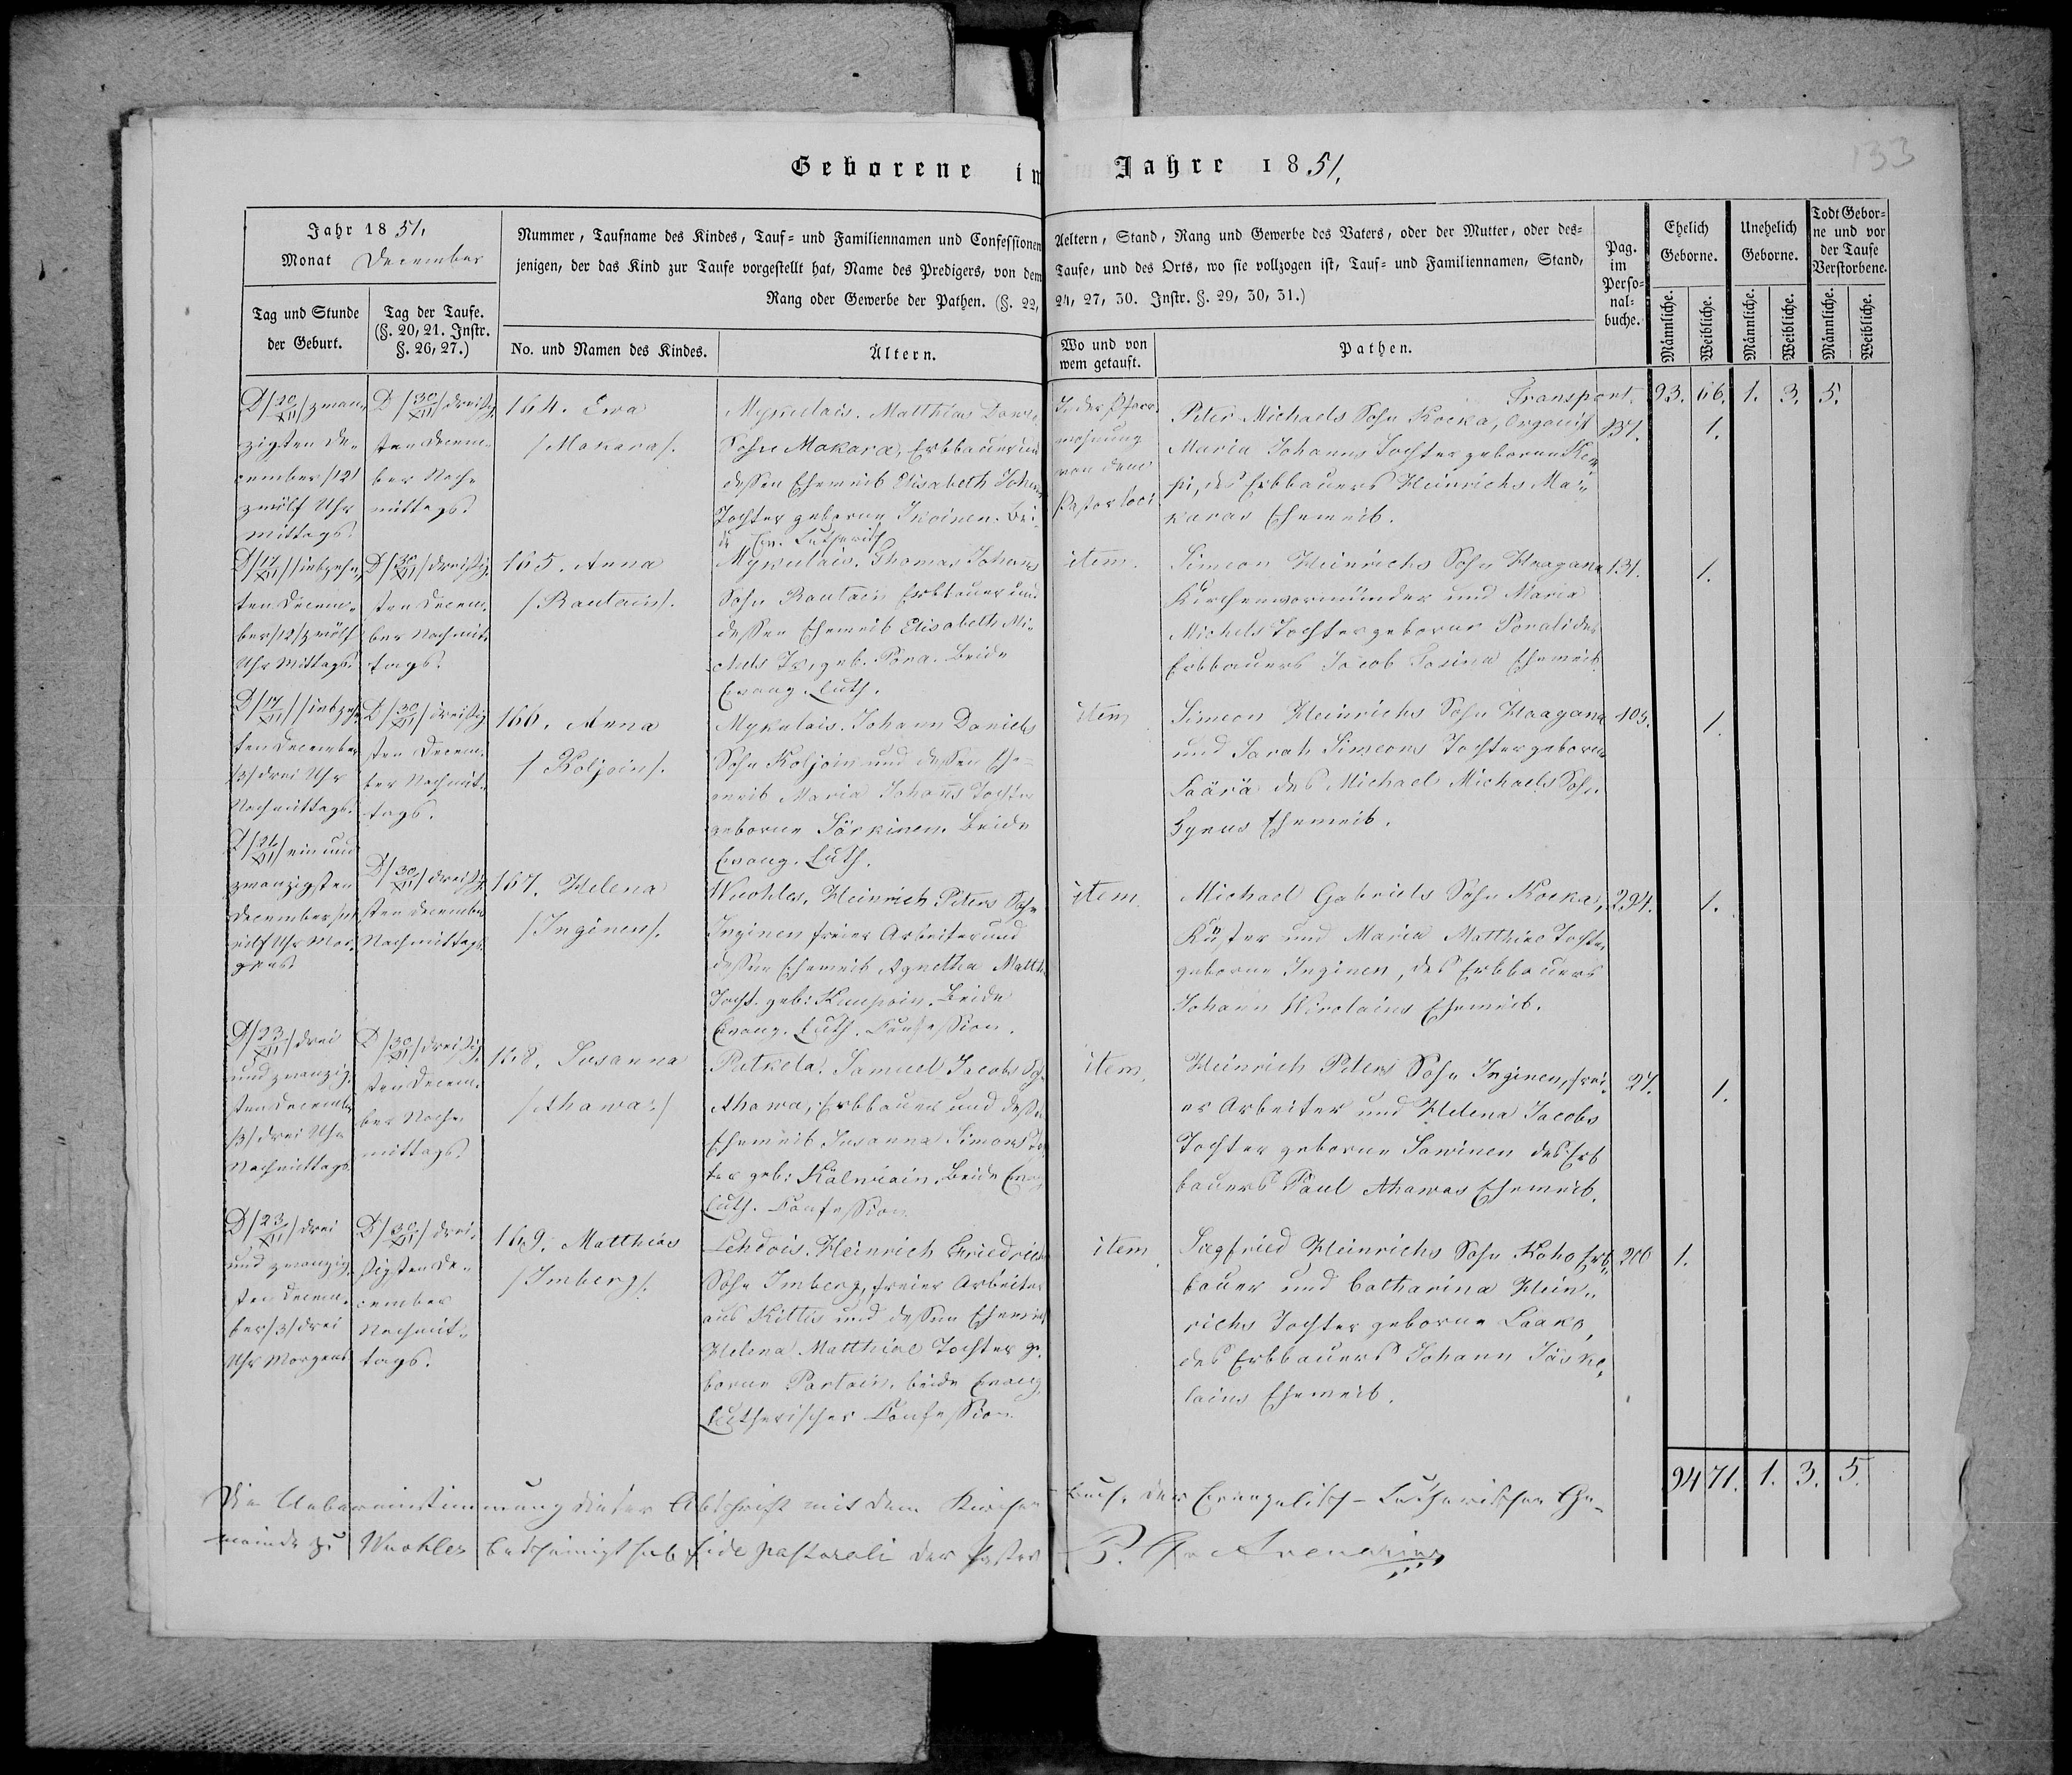 133
Geborene im Jahre 1851.
Jahr 1851.
Monat December
Tag und Stunde
der Geburt.
Tag der Taufe.
(§. 20, 21. Instr.
§. 26, 27.)
Nummer, Taufname des Kindes, Tauf= und Familiennamen und Confessionen
jenigen, der das Kind zur Taufe vorgestellt hat, Name des Predigers, von dem
Rang oder Gewerbe der Pathen. (§. 22,
No. und Namen des Kindes.
Ältern.
Aeltern, Stand, Rang und Gewerbe des Vaters, oder der Mutter, oder des=
Taufe, und des Orts, wo sie vollzogen ist, Tauf= und Familiennamen, Stand,
24, 27, 30. Instr. §. 29, 30, 31.)
Wo und von
wem getauft.
Pathen.
Pag.
im
Perso=
nal=
buche.
Ehelich
Geborne.
Unehelich
Geborne.
Todt Gebor=
ne und vor
der Taufe
Verstorbene.
Männliche.
Weibliche.
Männliche.
Weibliche.
Männliche.
Weibliche.
Transport. 93. 66. 1. 3. 5.
D/20/XII/ zwan
zigsten De
cember /12/
zwölf Uhr
Mittags.
D/30/XII/ dreißig
sten Decem
ber Nach
mittags.
164. Ewa
/Makara/.
Mykulais. Matthias
Sohn Makara, Erbbauer und
dessen Eheweib Elisabeth Johans
Tochter geborne Ikoinen. Bei
de Ev. Lutherisch
In der Pfarr
wohnung
von dem
Pastor loci
Peter Michaels Sohn Kocka, Organist
Maria Johanns Tochter geborne
pi, des Erbbauers Heinrichs Ma
karas Eheweib.
137. 1.
D/17/XII/ siebzehn
ten Decem
ber /12/ zwölf
Uhr Mittags.
D/30/XII/ dreißig
sten Decem
ber Nachmit
tags.
165. Anna
/Rautain/.
Mykulais. Thomas Johanns
Sohn Rautain Erbbauer und
dessen Eheweib Elisabeth Mi
chels Tr. geb. Pora. Beide
Evang. Luth.
item.
Simeon Heinrichs Sohn Haagana
Kirchenvormünder und Maria
Michels Tochter geborne Porali des
Erbbauers Jacob Eheweib
131. 1.
D/17/XII/ siebzehn
ten December
/3/ drei Uhr
Nachmittags.
D/30/XII/ dreißig
sten Decem
ber Nachmit
tags.
166. Anna
/Koljoin/.
Mykulais. Johann Daniels
Sohn Koljoin und dessen Ehe
weib Maria Johanns Tochter
geborne Särkinen. Beide
Evang. Luth.
item
Simeon Heinrichs Sohn Haagana
und Sarah Simeons Tochter geborne
Säärä des Michael Michaels Sohn
Eheweib.
105. 1.
D/21/XII/ ein und
zwanzigsten
December /11/
eilf Uhr Mor
gens.
D/30/XII/ dreißig
sten December
Nachmittags.
167. Helena
/Inginen/.
Wuohles, Heinrich Peters Sohn
Inginen freier Arbeiter und
dessen Eheweib Agnetha Matth.
Tocht. geb: Beide
Evang. Luth. Confession.
item
Michael Gabriels Sohn Kocka,
Küster und Maria Matthias Tochter
geborne Inginen, des Erbbauers
Johann Wirolains Eheweib.
294. 1.
D/23/XII/ drei
und zwanzig
sten December
/3/ drei Uhr
Nachmittags
D/30/XII/ dreißig
sten Decem
ber Nach
mittags.
168. Susanna
/Ahawa:/
Putkela. Samuel Jacobs Sohn
Ahawa, Erbbauer und dessen
Eheweib Susanna Simons Toch
ter geb: Kälwiain. Beide Evang.
Luth. Confession
item
Heinrich Peters Sohn Inginen, frei
er Arbeiter und Helena Jacobs
Tochter geborne Sawinen des Erb
bauers Paul Ahawas Eheweib.
27. 1.
D/23/XII/ drei
und zwanzig
sten Decem
ber /3/ drei
Uhr Morgens
D/30/XII/ drei
ßigsten De
cember
Nachmit
tags.
169. Matthias
/Imberg/.
Lehdois. Heinrich Friedrichs
Sohn Imberg, freier Arbeiter
aus Kittis und dessen Eheweib
Helena Matthias Tochter ge
borne Partain, beide Evang.
Lutherischer Confession.
item
Siegfried Heinrichs Sohn Koho Erb
bauer und Catharina Hein
richs Tochter geborne Laako,
des Erbbauers Johann Jäske
lains Eheweib.
210 1.
94 71. 1. 3. 5.
Die Uebereinstimmung dieser Abschrift mit dem Kirchen Buche der Evangelisch-Lutherischen Ge
meinde zu Wuohles bescheinigt fide pastorali der Pastor Avenarius